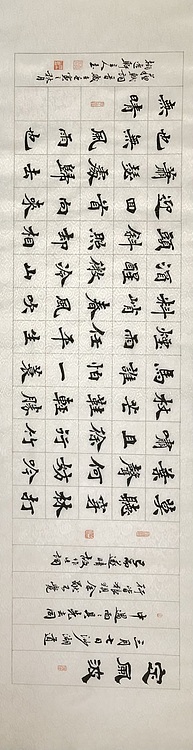 定風波
三月七日沙湖道
中遇雨雨具先去同
行皆狼狽余獨不覺
已而遂晴故作此詞
莫聽穿林打
葉聲何妨吟
嘯且徐行竹
杖芒鞋輕勝
馬誰怕一蓑
煙雨任平生
料峭春風吹
酒醒微冷山
頭斜照卻相
迎回首向來
蕭瑟處歸去
也無風雨也
無晴